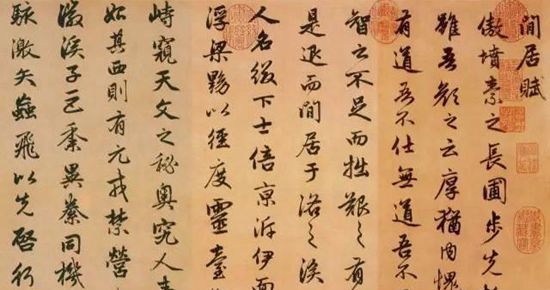 閒居賦
傲墳素之長圃步先
雖吾顏之云厚猶内愧
有道吾不仕無道吾不
智之不足而拙艱之有
是退而閒居于洛之涘
人名綴下士倍京泝伊面
浮梁黝以徑度靈臺
峙窺天文之秘奥究人
如其西則有元戎禁營
徽溪子巨黍異絭同機
駭激矢蝱飛以先啓行